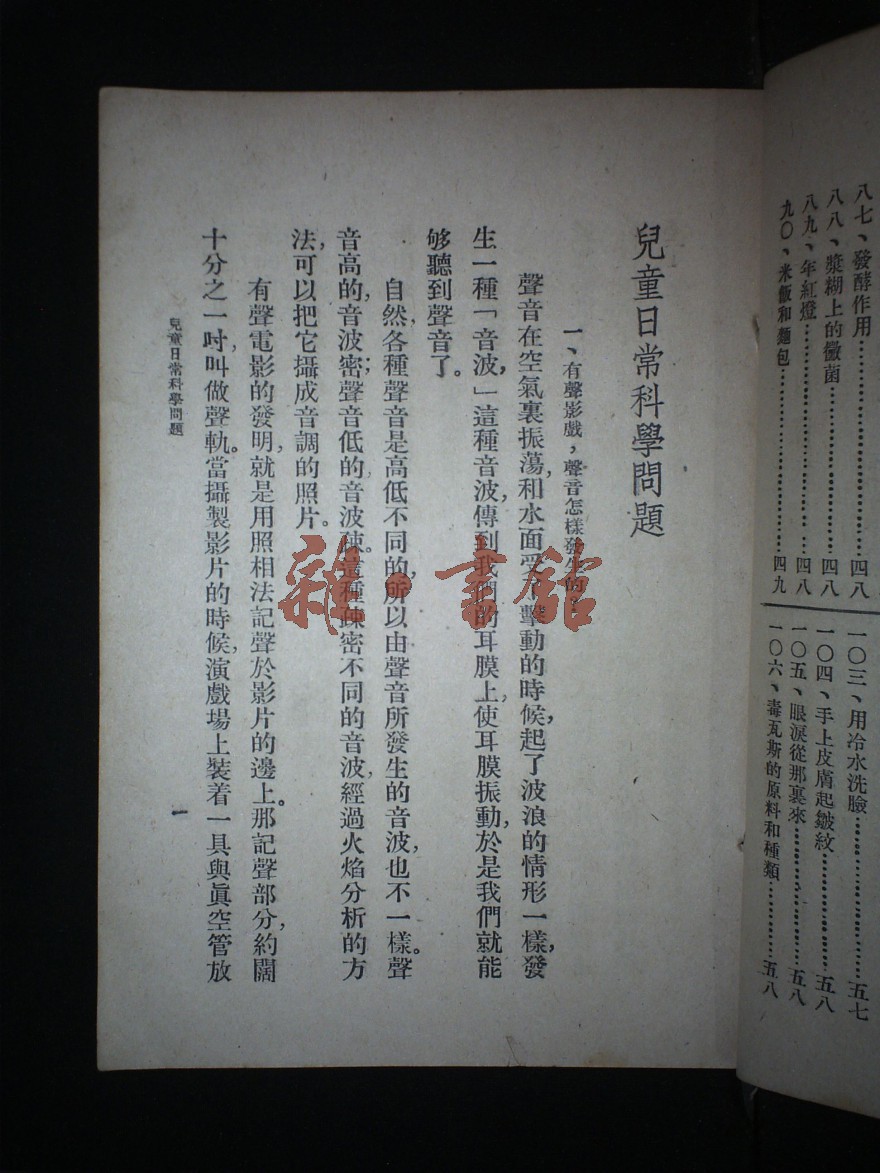 八七、發酵作用……四八
八八、漿糊上的黴菌……四八
八九、年紅燈……四八
九〇、米飯和麵包……四九
一〇三、用冷水洗臉……五七
一〇四、手上皮膚起皺紋……五八
一〇五、眼淚從那裏來……五八
一〇六、毒瓦斯的原料和種類……五八
兒童日常科學問題
一、有聲影戲，聲音怎樣發生的？
聲音在空氣裏振蕩，和水面受了擊動的時候，起了波浪的情形一樣，發
生一種「音波，」這種音波，傳到我們的耳膜上，使耳膜振動，於是我們就能
够聽到聲音了。
自然，各種聲音是高低不同的，所以由聲音所發生的音波，也不一樣。聲
音高的，音波密；聲音低的音波疎。這種疎密不同的音波，經過火焰分析的方
法，可以把它攝成音調的照片。
有聲電影的發明，就是用照相法記聲於影片的邊上。那記聲部分，約闊
十分之一吋，叫做聲軌。當攝製影片的時候，演戲場上裝着一具與眞空管放
兒童日常科學問題
一
雜·書館